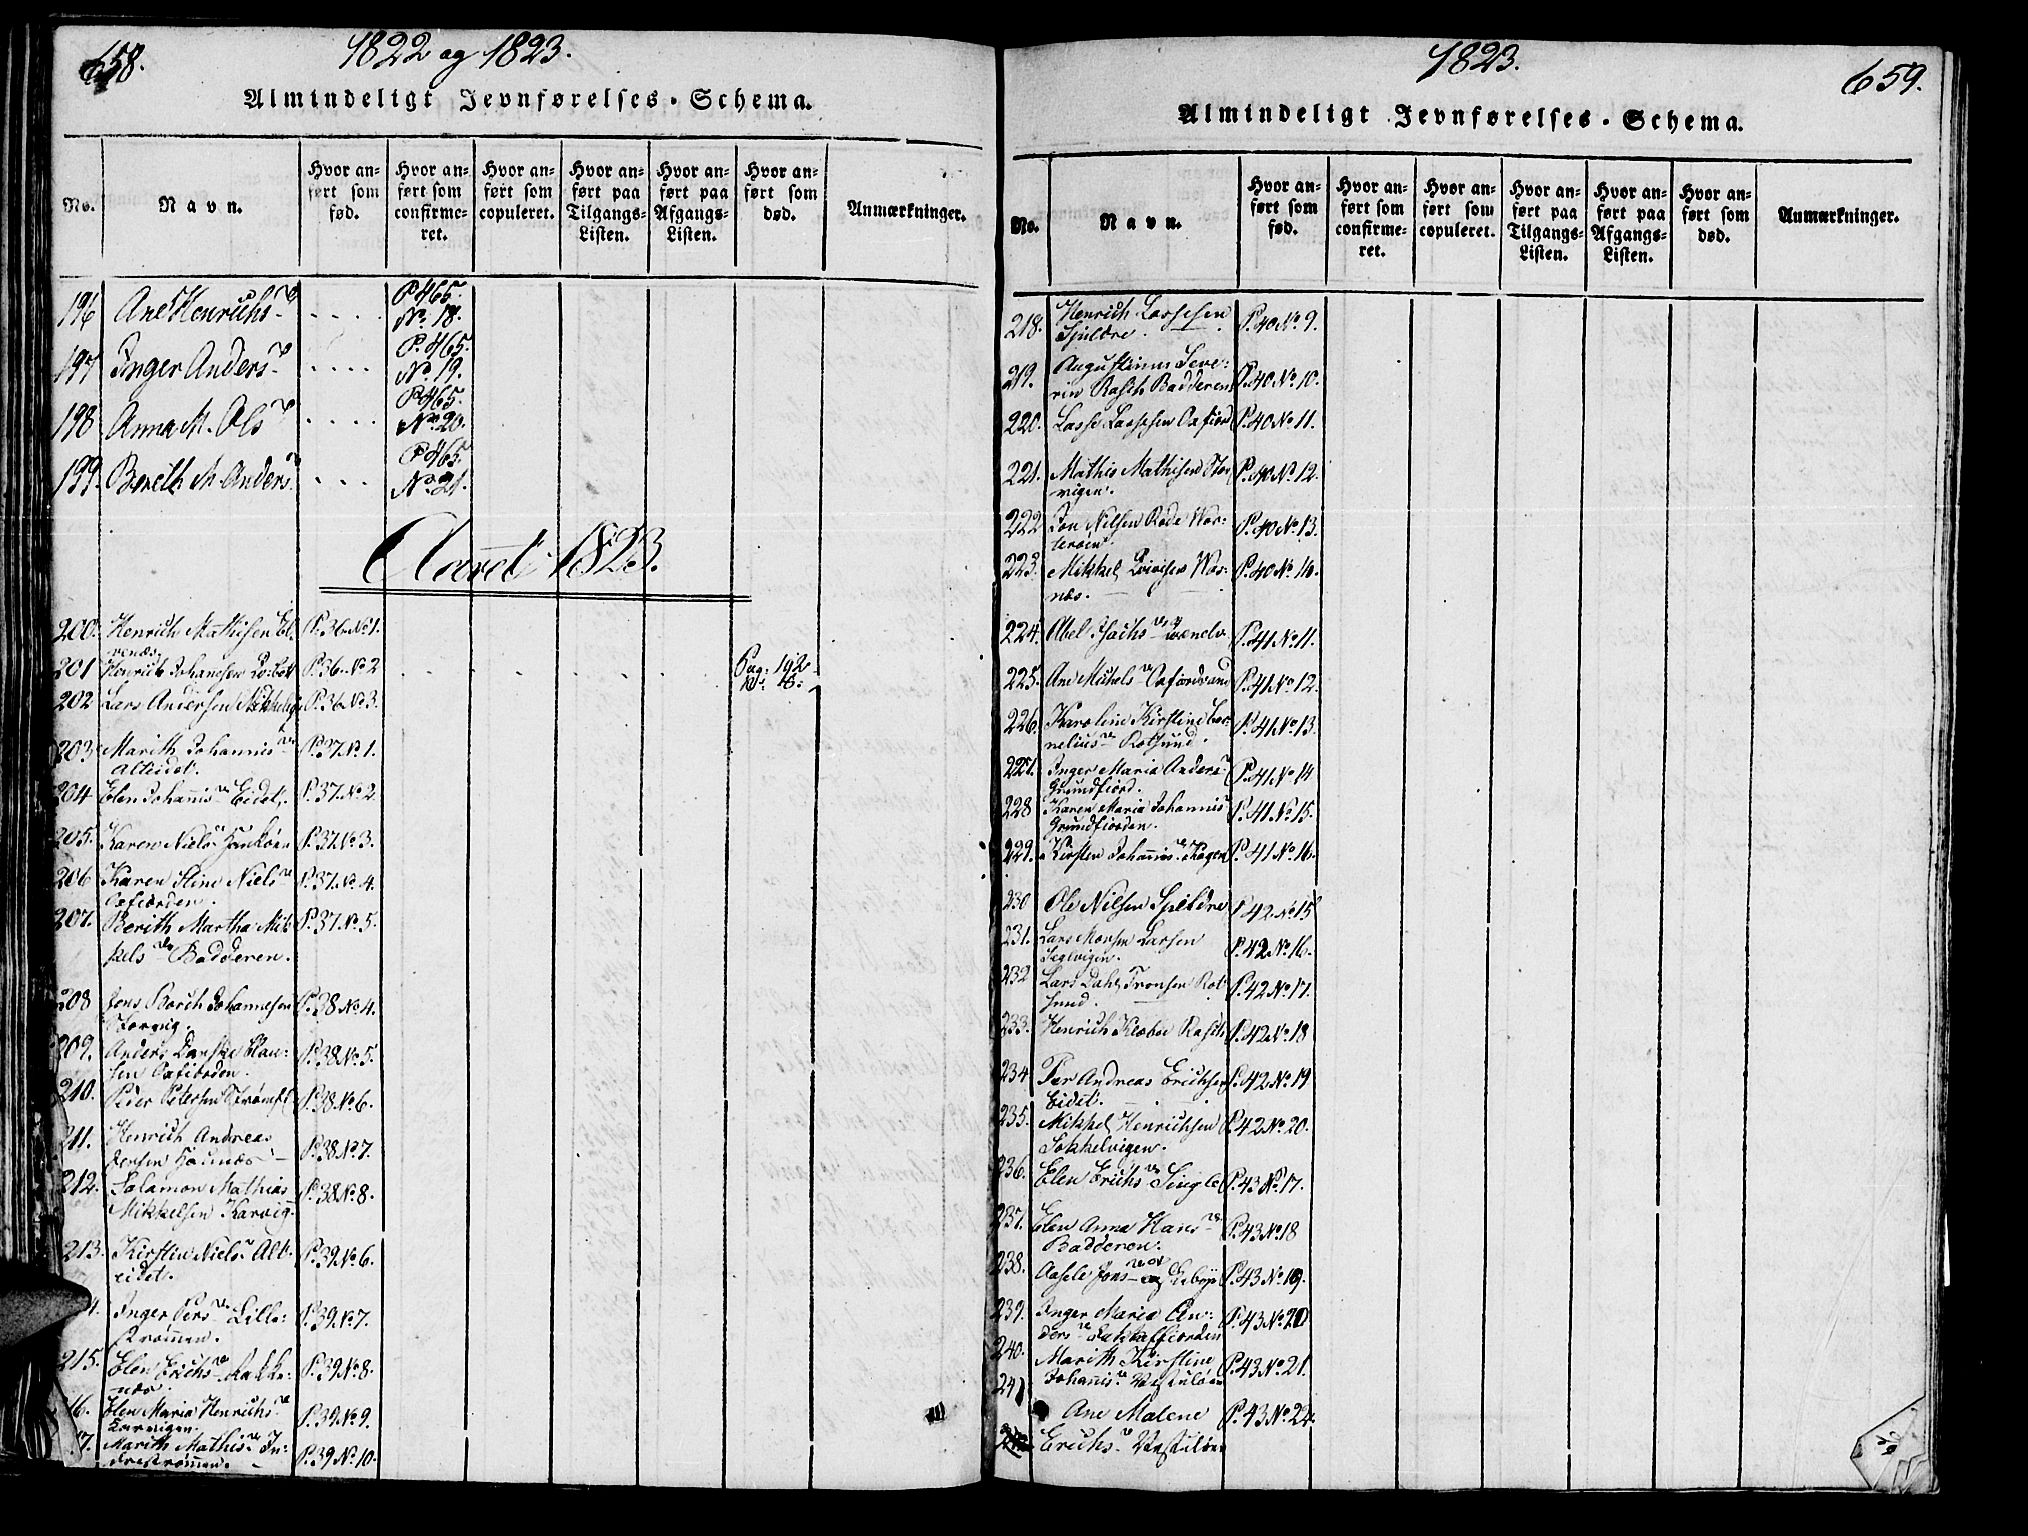 658.
1822 og 1823.
Almindeligt Jevnførelses-Schema.
No. Navn. Hvor anført som fød. Hvor anført som confirmeret. Hvor anført som copuleret. Hvor anført paa Tilgangs-Listen. Hvor anført paa Afgangs-Listen. Hvor anført som død. Anmærkninger.
196 Ane Henrichs D P 465. No. 18.
197 Inger Anders D P. 465. No. 19.
198 Anna M. Ols D P 465. No. 20.
199. Berith M. Anders P 465. No. 21.
Aaret 1823.
200. Henrich Mathisen P. 36 No 1.
201 Henrich Johannesen P. 36. No 2 Pag. 192
202 Lars Andersen P. 36 No 3.
203 Marith Johannis P. 37. No 1.
Alteidet.
204 Elen Johannis Eidet. P. 37. No 2.
205. Karen Niels P. 37. No 3.
206 Karen Stine Niels P. 37. No. 4.
Oxfiorden.
207. Berith Martha Mik P. 37 No 5.
kels Badderen.
208 Jens Borch Johannesen P. 38 No 4.
Storvig.
209. Anders P. 38 No 5.
sen Oxfiorden.
210. Peder Petersen P. 38 No 6.
211. Henrich Andreas
Jensen P. 38 No 7.
212. Salamon Mathias P. 38 No 8.
Mikkelsen Karvig.
213. Kirstin Niels Alt- P. 39. No 6.
eidet.
Inger Pers Lille- P. 39. No 7.
strømmen.
215. Elen Erichs P. 39. No 8.
næs.
16. Elen Maria Henrichs P. 39. No 9.
17. Marith Mathis In- P. 39 No 10.
drestrømmen.
1823.
659.
Almindeligt Jevnførelses-Schema.
No. Navn. Hvor anført som fød. Hvor anført som confirmeret. Hvor anført som copuleret. Hvor anført paa Tilgangs-Listen. Hvor anført paa Afgangs-Listen. Hvor anført som død. Anmærkninger.
218. Henrich Lassesen P. 40 No 9.
Spildre.
219. Augustinus Seve-
rin Rasch Badderen P. 40 No 10.
220. Lasse Lassesen Oxfiord P. 40 No 11.
221. Mathis Mathisen Stor P. 40 No 12.
vigen.
222 Jon Nilsen Rode Vor- P. 40 No 13.
terøen.
223. Mikkel P. 40 No 14.
næs.
224. Abel Isachs P. 41 No 11.
225. Ane Michels P. 41 No 12.
226. Karoline Kirstine Cor P. 41 No 13.
nelius Rotsund.
227. Inger Maria Anders P. 41 No 14
Grundfiord.
228 Karen Maria Johannis P. 41 No 15.
Grundfiorden.
229. Kirsten Johannis P. 41 No 16.
230 Ole Nilsen Spildre P 42 No 15
231. Lars Monsen Larsen
Seglvigen. P. 42 No 16.
232 Lars Dahl Tronsen Rot P. 42 No 17.
sund.
233. Henrich Klæboe Rasch P. 42 No 18
234 Per Andreas Erichsen P. 42 No 19
Eidet.
235. Mikkel Henrichsen P. 42 No 20.
Sokkelvigen.
236. Elen Erichs P. 43 No 17.
237. Elen Anna Hans P. 43 No 18
Badderen.
238. Aasele Jons P. 43 No 19.
239. Inger Maria An- P. 43 No 20
ders
240. Marith Kirstine P. 43 No 21.
Johannis
241 Ane Malene P. 43 No 22.
Erichs